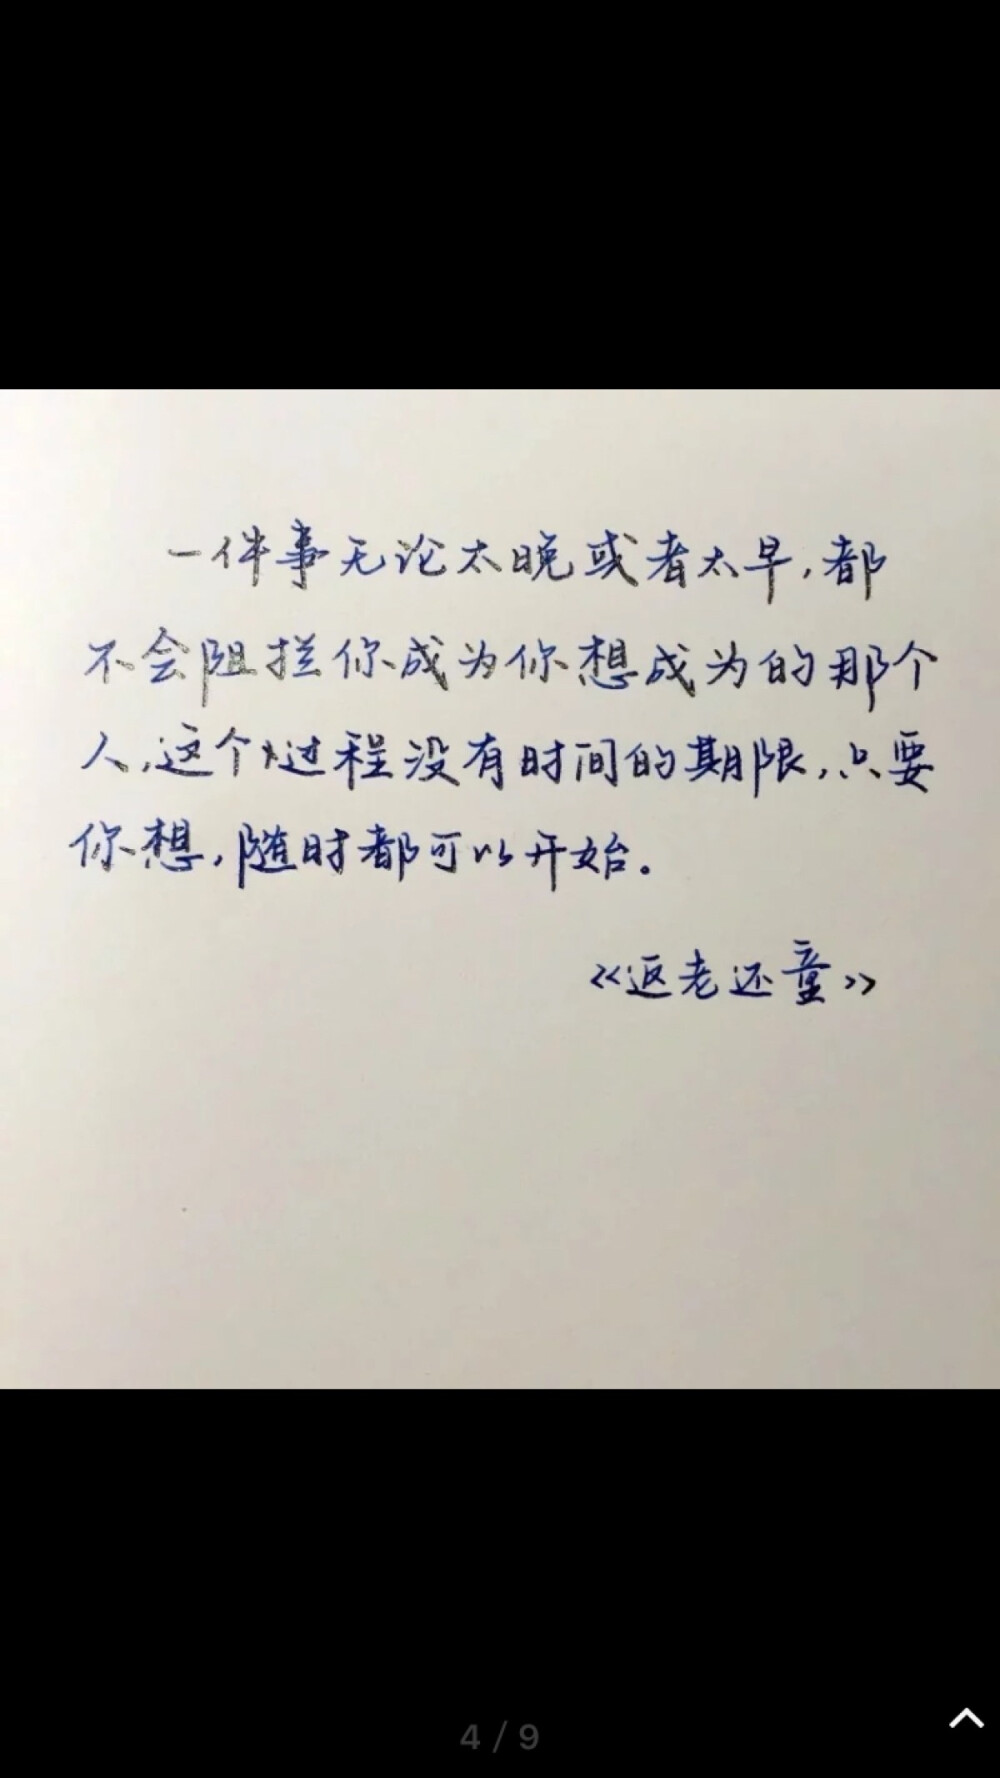 一件事无论太晚或者太早,都
不会阻拦你成为你想成为的那个
人,这个过程没有时间的期限,只要
你想,随时都可以开始。
《返老还童》
4 / 9